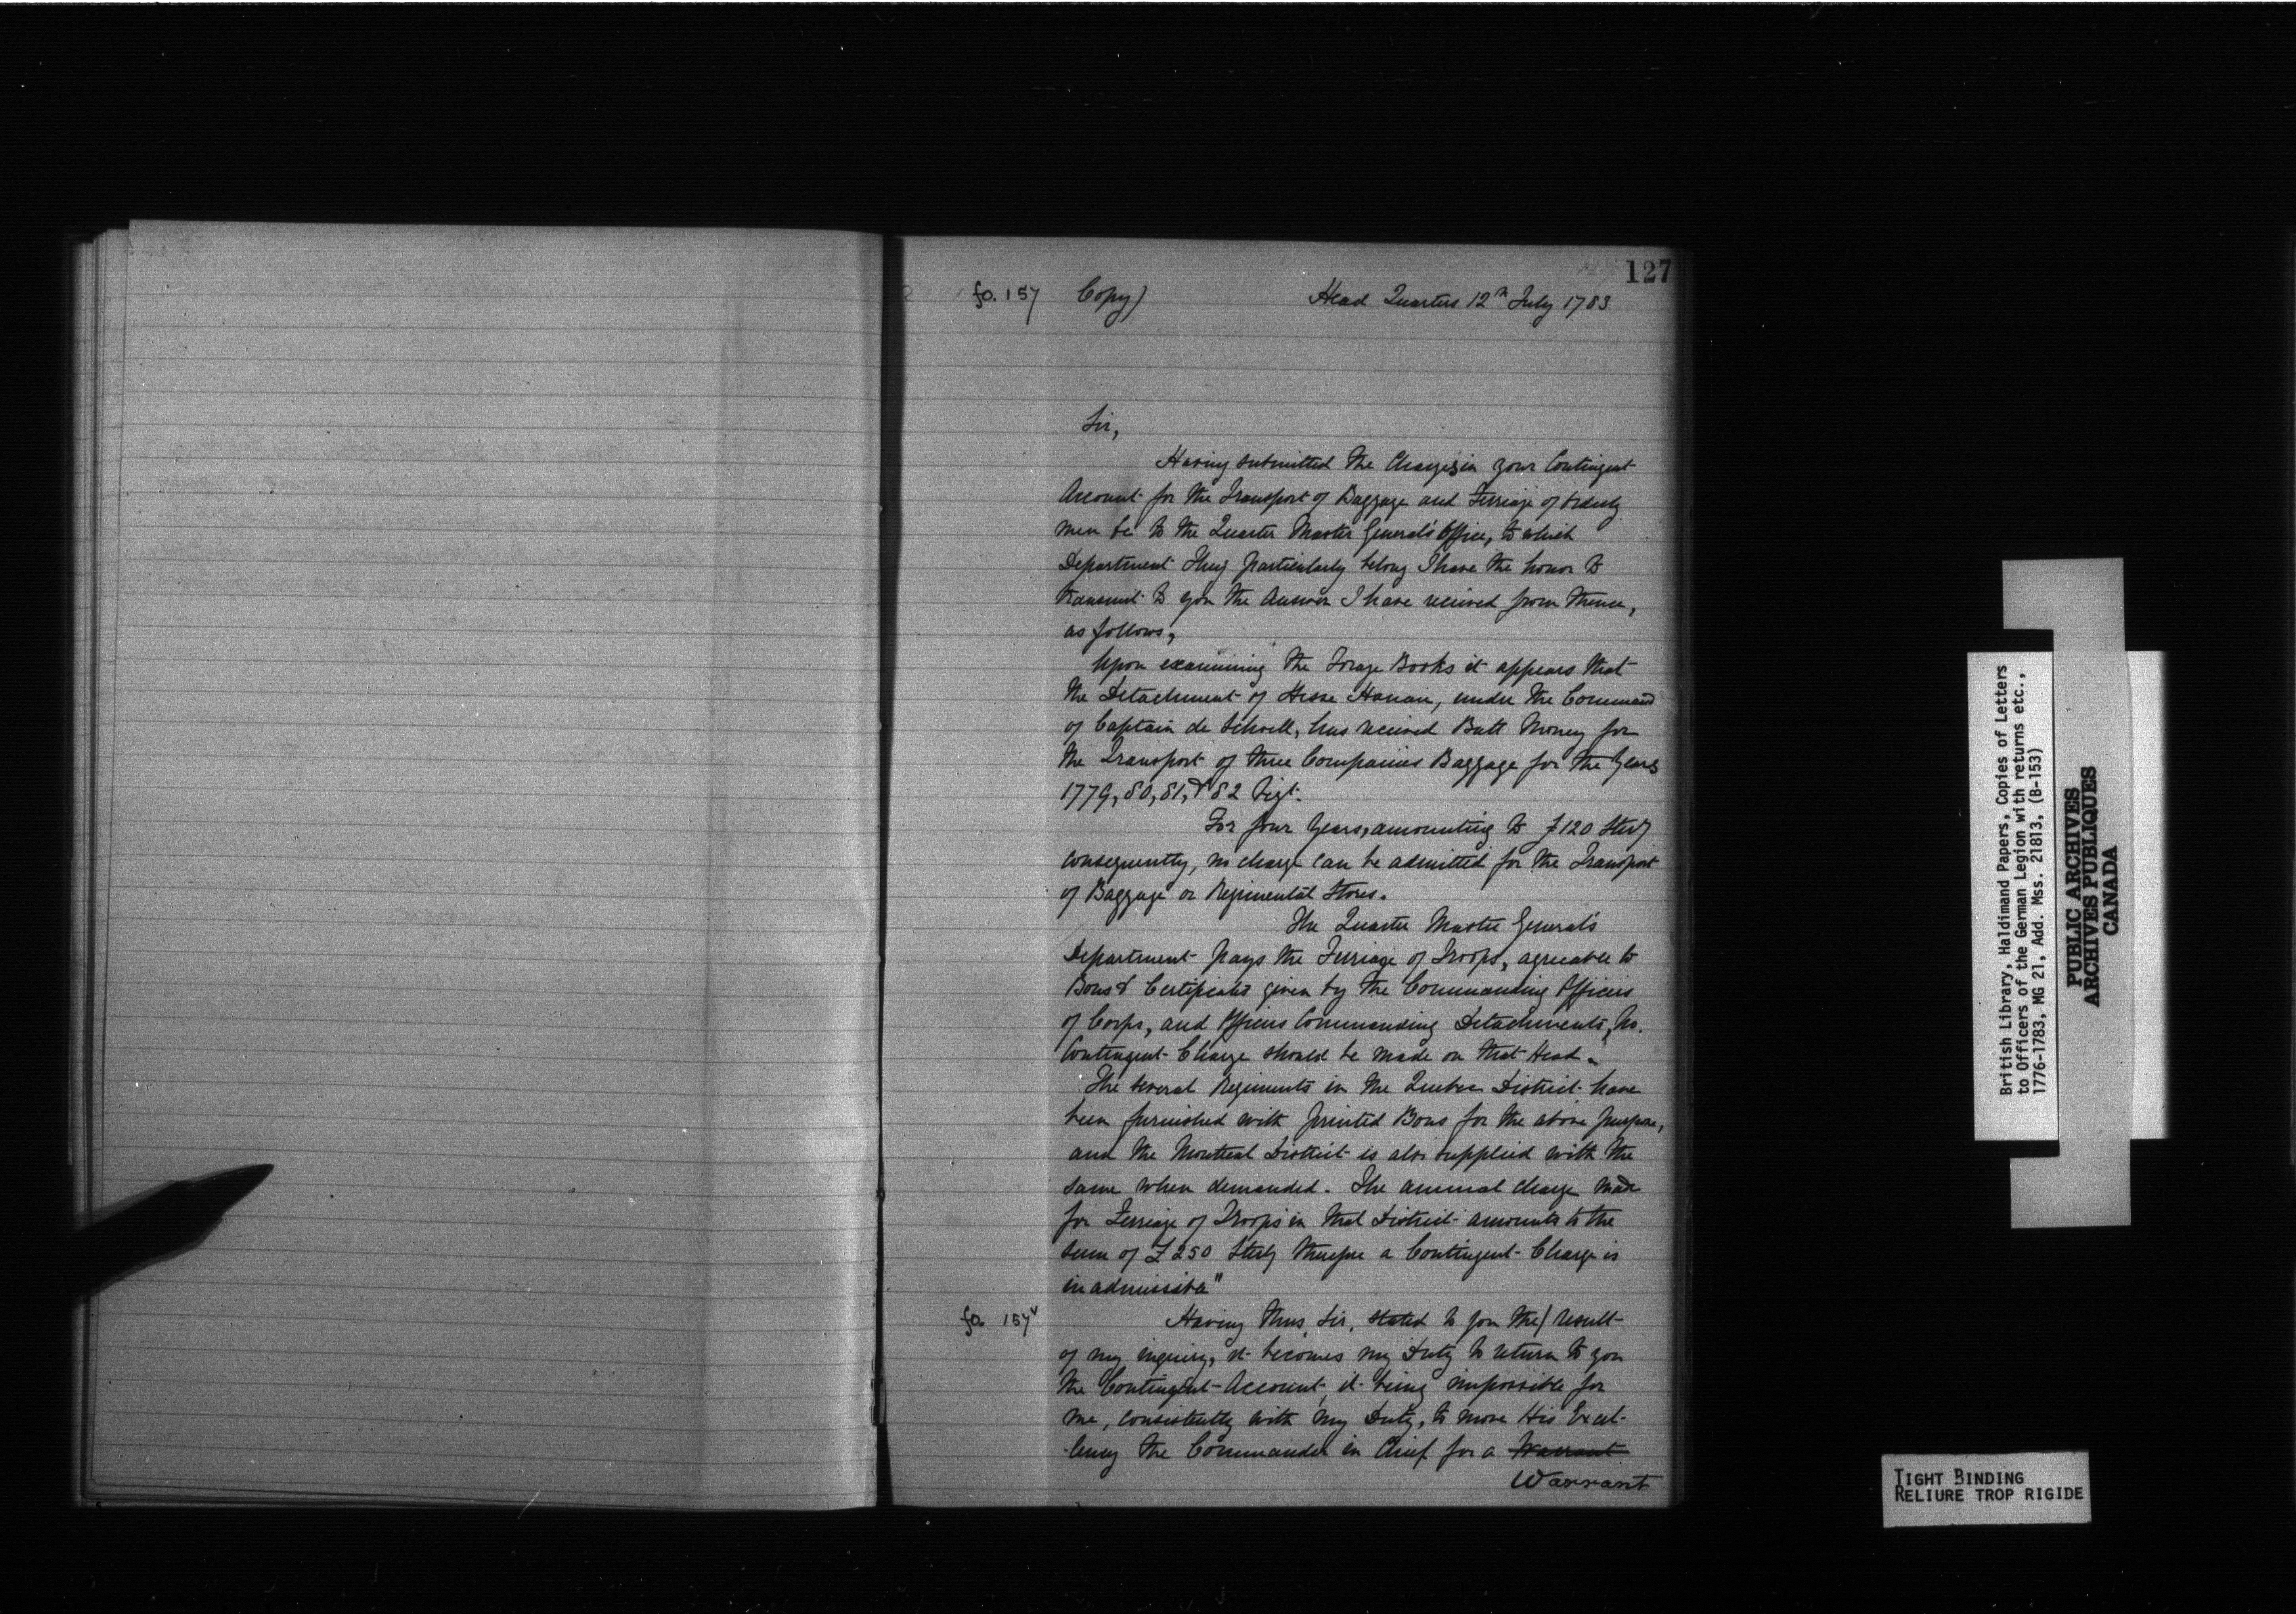 127
fo. 157 Copy) Head Quarters 12th July 1783
Sir,
Having submitted the Charges in your Contingent
Account for the Transport of Baggage and Ferriage of Orderly
men &c to the Quarter Master General's Office, to which
Department they particularly belong I have the honor to
transmit to you the Answer I have received from thence,
as follows,
Upon examining the Forage Books it appears that
the Detachment of Hesse Hanau, under the Command
of Captain de Schoell, has received Batt Money for
the Transport of three Companies Baggage for the Years
1779, 80, 81, & 82 Vizt.
For four Years, amounting to £120 Sterg
consequently, no charge can be admitted for the Transport
of Baggage or Regimental Stores.
The Quarter Master General's
Department pays the Ferriage of Troops, agreeable to
Bons & Certificates given by the Commanding Officers
of Corps, and Officers Commanding Detachments, No.
Contingent Charge should be made on that Head.
The several Regiments in the Quebec District have
been furnished with printed Bons for the above purpose,
and the Montreal District is also supplied with the
same when demanded. The annual charge made
for Ferriage of Troops in that District amounts to the
sum of £250 Sterg therefore a Contingent Charge is
inadmissible"
fo. 157v Having thus, Sir, stated to you the/ result
of my inquiry, it becomes my Duty to return to you
the Contingent Account, it being impossible for
me, consistently with my Duty, to move His Excel-
-lency the Commander in Chief for a Warrant
Warrant
British Library, Haldimand Papers, Copies of Letters
to Officers of the German Legion with returns etc.,
1776-1783, MG 21, Add. Mss. 21813, (B-153)
PUBLIC ARCHIVES
ARCHIVES PUBLIQUES
CANADA
TIGHT BINDING
RELIURE TROP RIGIDE